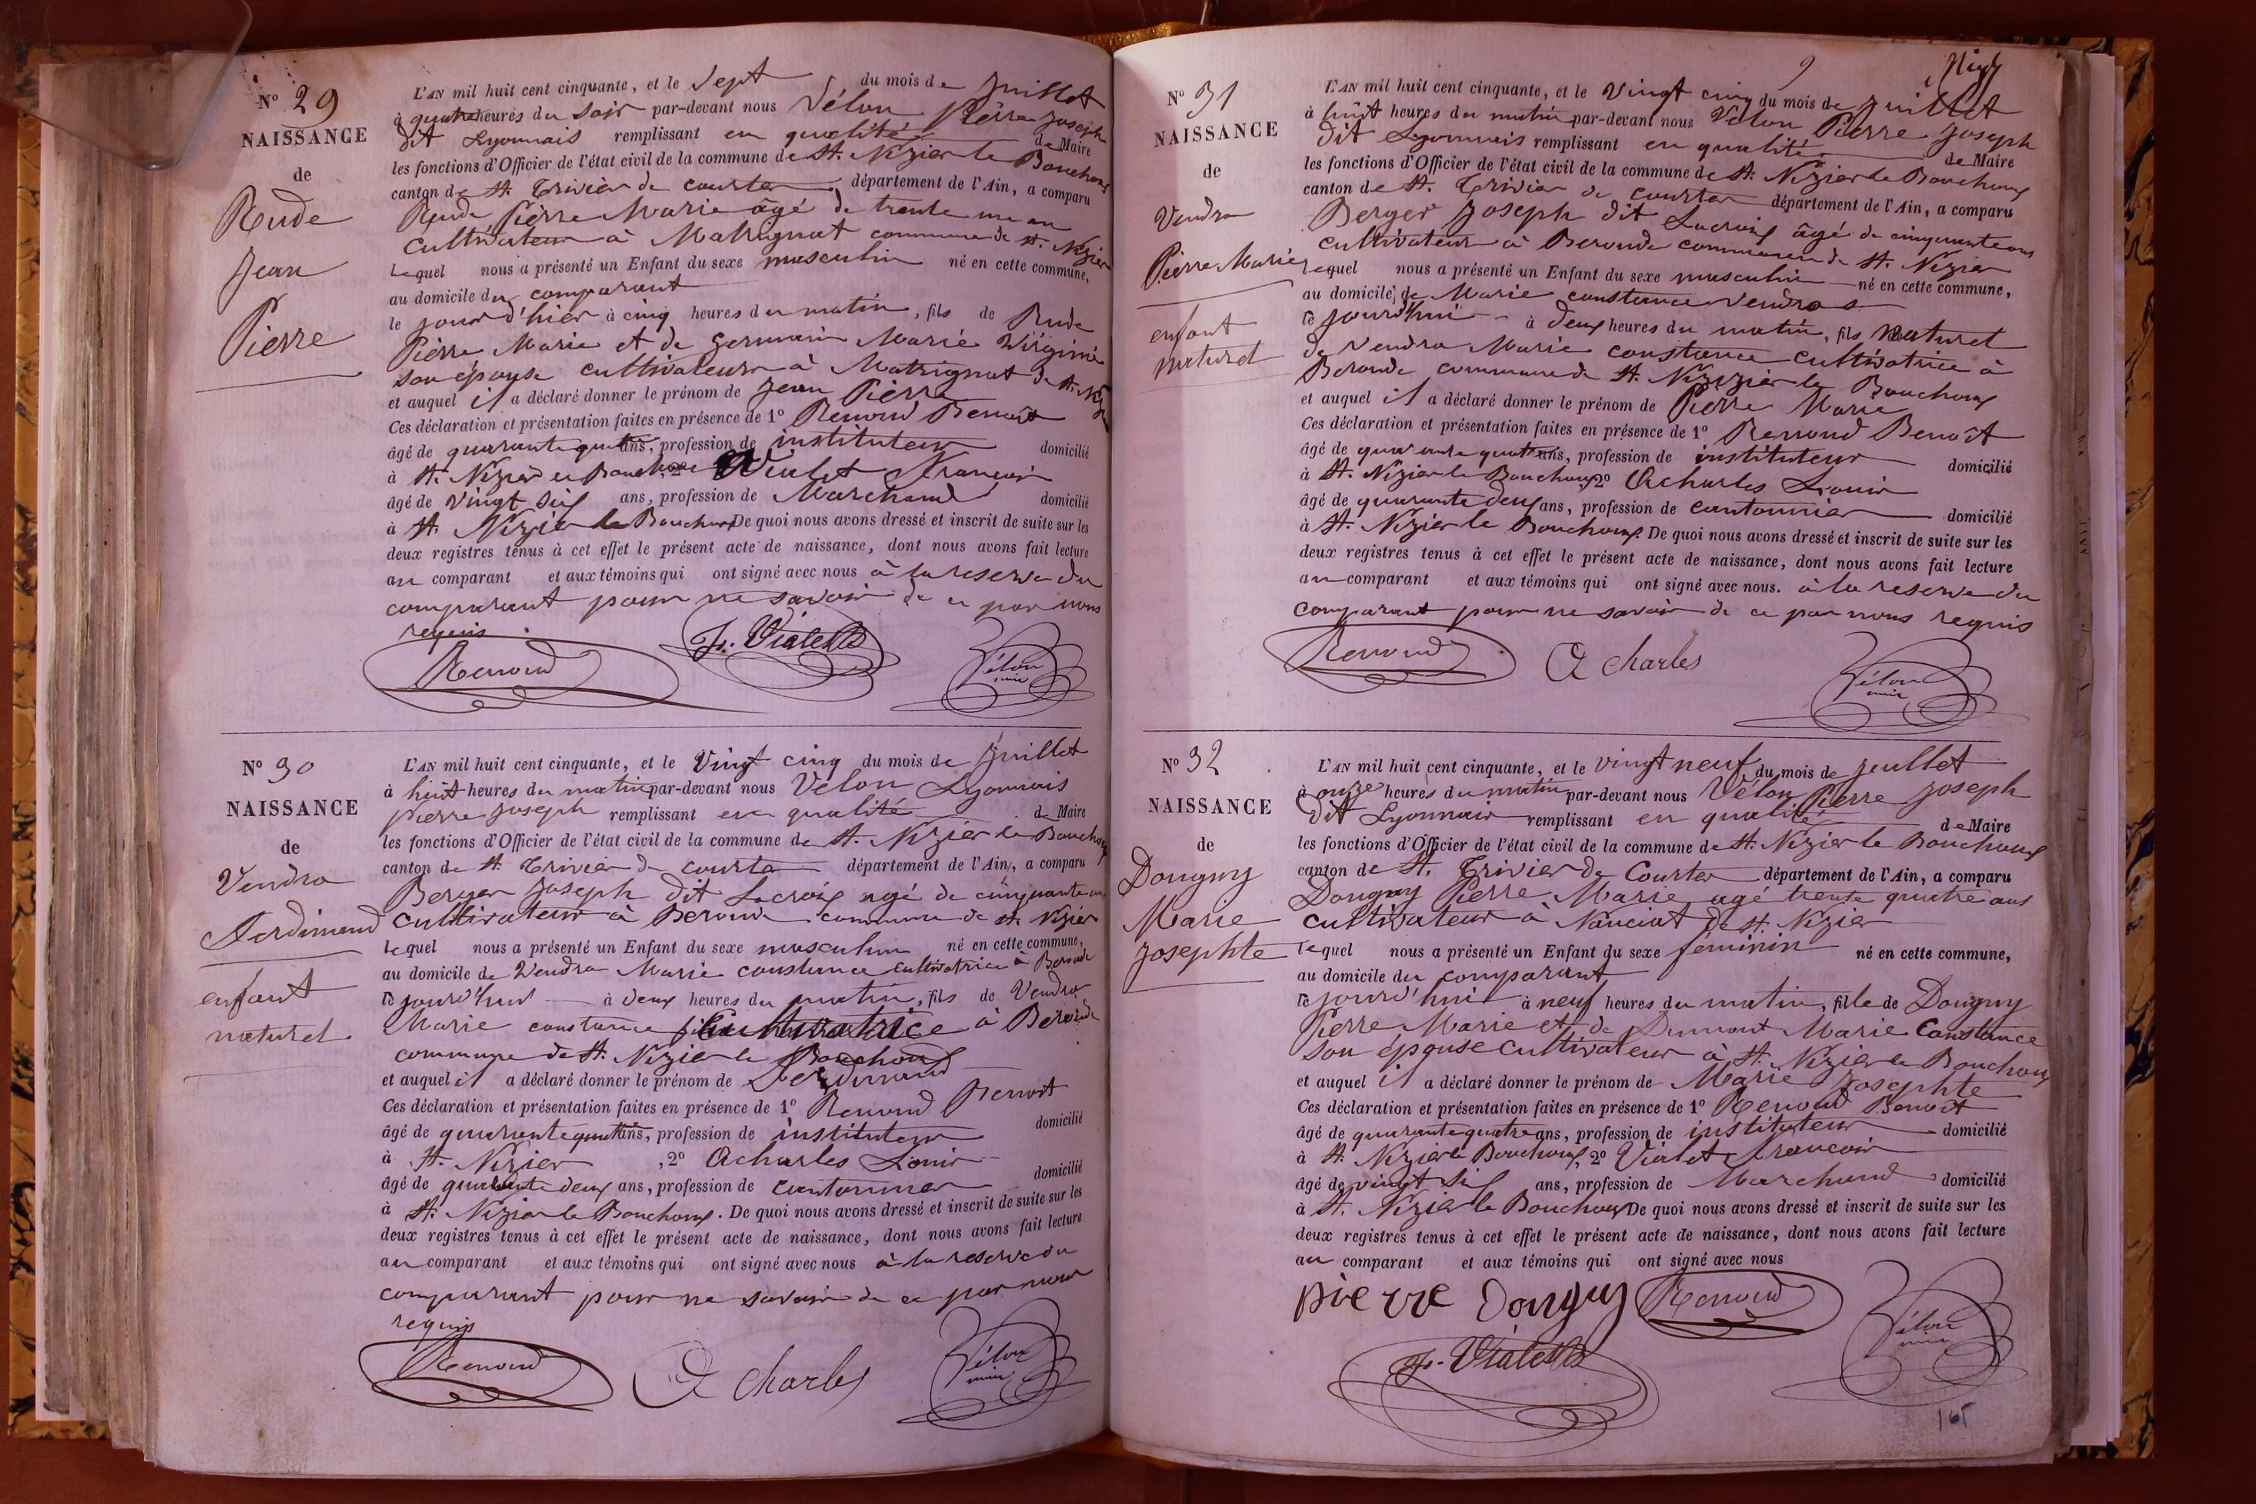 N° 29
NAISSANCE
de
Rude
Jean
Pierre
L'AN mil huit cent cinquante, et le Sept du mois de Juillet
à quatre heures du soir par-devant nous Vélon Pierre Joseph
dit Lyonnais remplissant en qualité de Maire
les fonctions d'Officier de l'état civil de la commune de St. Nizier le Bouchoux
canton de St. Trivier de courtes, département de l'Ain, a comparu
Rude Pierre Marie âgé de trente un an
cultivateur à Matrignat commune de St. Nizier
lequel nous a présenté un Enfant du sexe masculin né en cette commune,
au domicile du comparant
le jour d'hier à cinq heures du matin, fils de Rude
Pierre Marie et de Germain Marie Virginie
son épouse cultivateurs à Matrignat de St. Nizier
et auquel il a déclaré donner le prénom de Jean Pierre
Ces déclaration et présentation faites en présence de 1° Renoud Benoit
âgé de quarante quatre ans, profession de instituteur domicilié
à St. Nizier le Bouchoux 2° Vialet François
âgé de vingt six ans, profession de Marchand domicilié
à St. Nizier le Bouchoux De quoi nous avons dressé et inscrit de suite sur les
deux registres tenus à cet effet le présent acte de naissance, dont nous avons fait lecture
au comparant et aux témoins qui ont signé avec nous à la reserve du
comparant pour ne savoir de ce par nous
requis
Renoud F. Vialet Vélon
maire
N° 30
NAISSANCE
de
Vendra
Ferdinand
enfant
naturel
L'AN mil huit cent cinquante, et le Vingt cinq du mois de Juillet
à huit heures du matin par-devant nous Vélon Lyonnais
Pierre Joseph remplissant en qualité de Maire
les fonctions d'Officier de l'état civil de la commune de St. Nizier le Bouchoux
canton de St. Trivier de courtes département de l'Ain, a comparu
Berger Joseph dit Lacroix agé de cinquante ans
cultivateur à Beroude commune de St. Nizier
lequel nous a présenté un Enfant du sexe masculin né en cette commune,
au domicile de Vendra Marie constance cultivatrice à Beroude
le jourd'hui à deux heures du matin, fils de Vendra
Marie constance cultivatrice à Beroude
commune de St. Nizier le Bouchoux
et auquel il a déclaré donner le prénom de Ferdinand
Ces déclaration et présentation faites en présence de 1° Renoud Benoit
âgé de quarante quatre ans, profession de instituteur domicilié
à St. Nizier, 2° Acharles Louis
âgé de quarante deux ans, profession de cantonnier domicilié
à St. Nizier le Bouchoux. De quoi nous avons dressé et inscrit de suite sur les
deux registres tenus à cet effet le présent acte de naissance, dont nous avons fait lecture
au comparant et aux témoins qui ont signé avec nous à la reserve du
comparant pour ne savoir de ce par nous
requis
Renoud A charles Vélon
maire
9
N° 31
NAISSANCE
de
Vendra
Pierre Marie
enfant
naturel
L'AN mil huit cent cinquante, et le Vingt cinq du mois de Juillet
à huit heures du matin par-devant nous Vélon Pierre Joseph
dit Lyonnais remplissant en qualité de Maire
les fonctions d'Officier de l'état civil de la commune de St. Nizier le Bouchoux
canton de St. Trivier de courtes département de l'Ain, a comparu
Berger Joseph dit Lacroix âgé de cinquante ans
cultivateur à Beroude commune de St. Nizier
lequel nous a présenté un Enfant du sexe masculin né en cette commune,
au domicile de Marie constance vendra
le jourd'hui à deux heures du matin, fils naturel
de Vendra Marie constance cultivatrice à
Beroude commune de St. Nizizier le Bouchoux
et auquel il a déclaré donner le prénom de Pierre Marie
Ces déclaration et présentation faites en présence de 1° Renoud Benoît
âgé de quarante quatre ans, profession de instituteur domicilié
à St. Nizier le Bouchoux, 2° Acharles Louis
âgé de quarante deux ans, profession de cantonnier domicilié
à St. Nizier le Bouchoux. De quoi nous avons dressé et inscrit de suite sur les
deux registres tenus à cet effet le présent acte de naissance, dont nous avons fait lecture
au comparant et aux témoins qui ont signé avec nous. à la reserve du
comparant pour ne savoir de ce par nous requis
Renoud A charles Vélon
maire
N° 32
NAISSANCE
de
Donguy
Marie
Josephte
L'AN mil huit cent cinquante, et le vingt neuf du mois de Juillet
à onze heures du matin par-devant nous Vélon Pierre Joseph
dit Lyonnais remplissant en qualité de Maire
les fonctions d'Officier de l'état civil de la commune de St. Nizier le Bouchoux
canton de St. Trivier de Courtes département de l'Ain, a comparu
Donguy Pierre Marie agé trente quatre ans
cultivateur à Nanciat de St. Nizier
lequel nous a présenté un Enfant du sexe feminin né en cette commune,
au domicile du comparant
le jourd'hui à neuf heures du matin, fille de Donguy
Pierre Marie et de Dumont Marie Constance
son épouse cultivateur à St. Nizier le Bouchoux
et auquel il a déclaré donner le prénom de Marie Josephte
Ces déclaration et présentation faites en présence de 1° Renoud Benoit
âgé de quarante quatre ans, profession de instituteur domicilié
à St. Nizier le Bouchoux, 2° Vialet François
âgé de vingt six ans, profession de Marchand domicilié
à St. Nizier le Bouchoux De quoi nous avons dressé et inscrit de suite sur les
deux registres tenus à cet effet le présent acte de naissance, dont nous avons fait lecture
au comparant et aux témoins qui ont signé avec nous
pierre Donguy Renoud Vélon
maire
F. Vialet
165